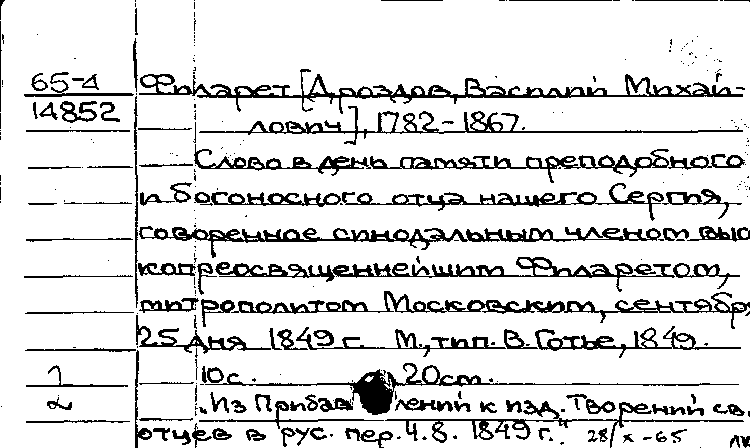 65-4 Филарет [Дроздов, Василий Михай-
14852 лович], 1782-1867.
Слово в день памяти преподобного
и богоносного отца нашего Сергия,
говоренное синодальным членом выс
копреосвященнейшим Филаретом,
митрополитом Московским, сентябр
25 дня 1849 г. М., тип. В. Готье, 1849.
10с. 20см.
"Из Прибавлений к изд. Творений св.
отцев в рус. пер. Ч. 8. 1849 г." 28/X-65